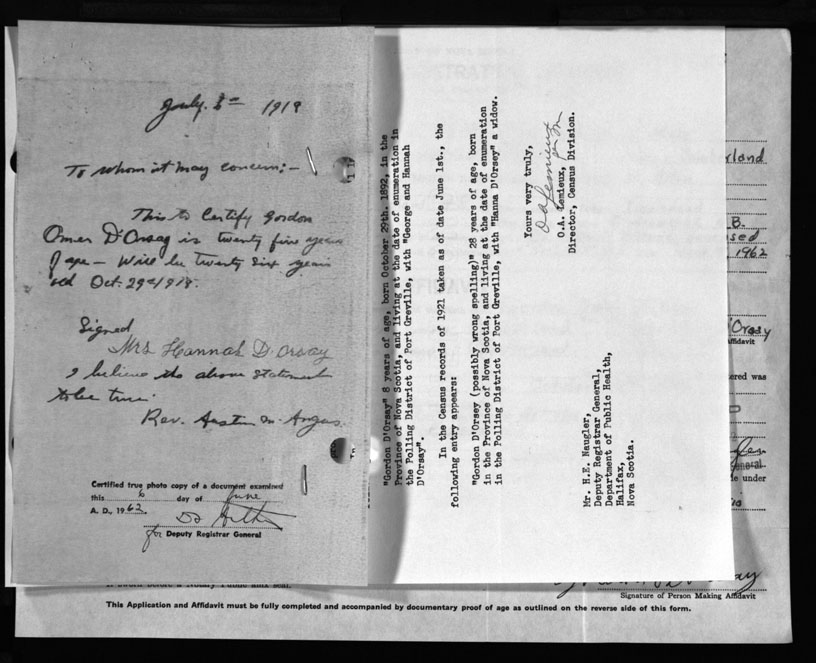 July. 1918
To whom it may concern:-
This to Certify Gordon
Omer D'Orsay is twenty five years
of age — Will be twenty six years
old Oct. 29th 1918.
Signed
Mrs Hannah D'Orsay
I believe the above statement
to be true.
Rev. Austin M. Angus.
Certified true photo copy of a document examined
this 6 day of June
A. D., 1962.
for Deputy Registrar General
"Gordon D'Orsay" 8 years of age, born October 29th. 1892, in the
Province of Nova Scotia, and living at the date of enumeration in
the Polling District of Port Greville, with "George and Hannah
D'Orsay".
In the Census records of 1921 taken as of date June 1st., the
following entry appears:
"Gordon D'Orsey (possibly wrong spelling)" 28 years of age, born
in the Province of Nova Scotia, and living at the date of enumeration
in the Polling District of Port Greville, with "Hanna D'Orsey" a widow.
Yours very truly,
O.A. Lemieux
O.A. Lemieux,
Director, Census Division.
Mr. H.E. Naugler,
Deputy Registrar General,
Department of Public Health,
Halifax,
Nova Scotia.
rland
B.
sed
1962
D'Orsay
Affidavit
ered was
General
ie under
Signature of Person Making Affidavit
This Application and Affidavit must be fully completed and accompanied by documentary proof of age as outlined on the reverse side of this form.